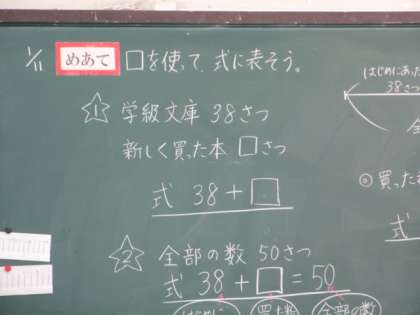 1/11 めあて □を使って、式に表そう。
☆1 学級文庫 38さつ
新しく買った本 □さつ
式 38+□
☆2 全部の数 50さつ
式 38+□=50
はじめに 買った数 全部の数
はじめにあった
38さつ
◎買った
式